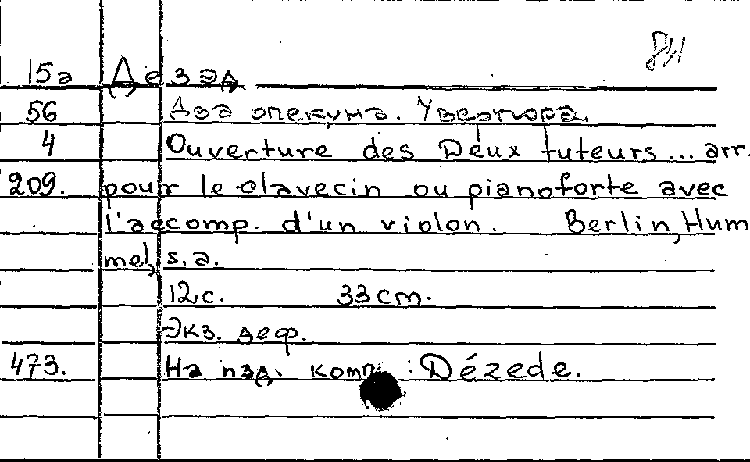 15а Дезэд
56 Два опекуна. Увертюра.
4 Ouverture des Deux tuteurs... arr.
209. pour le clavecin ou pianoforte avec
l'accomp. d'un violon. Berlin, Hum
mel, s.a.
12 с. 33 cm.
Экз. деф.
473. На изд. комп.: Dézede.